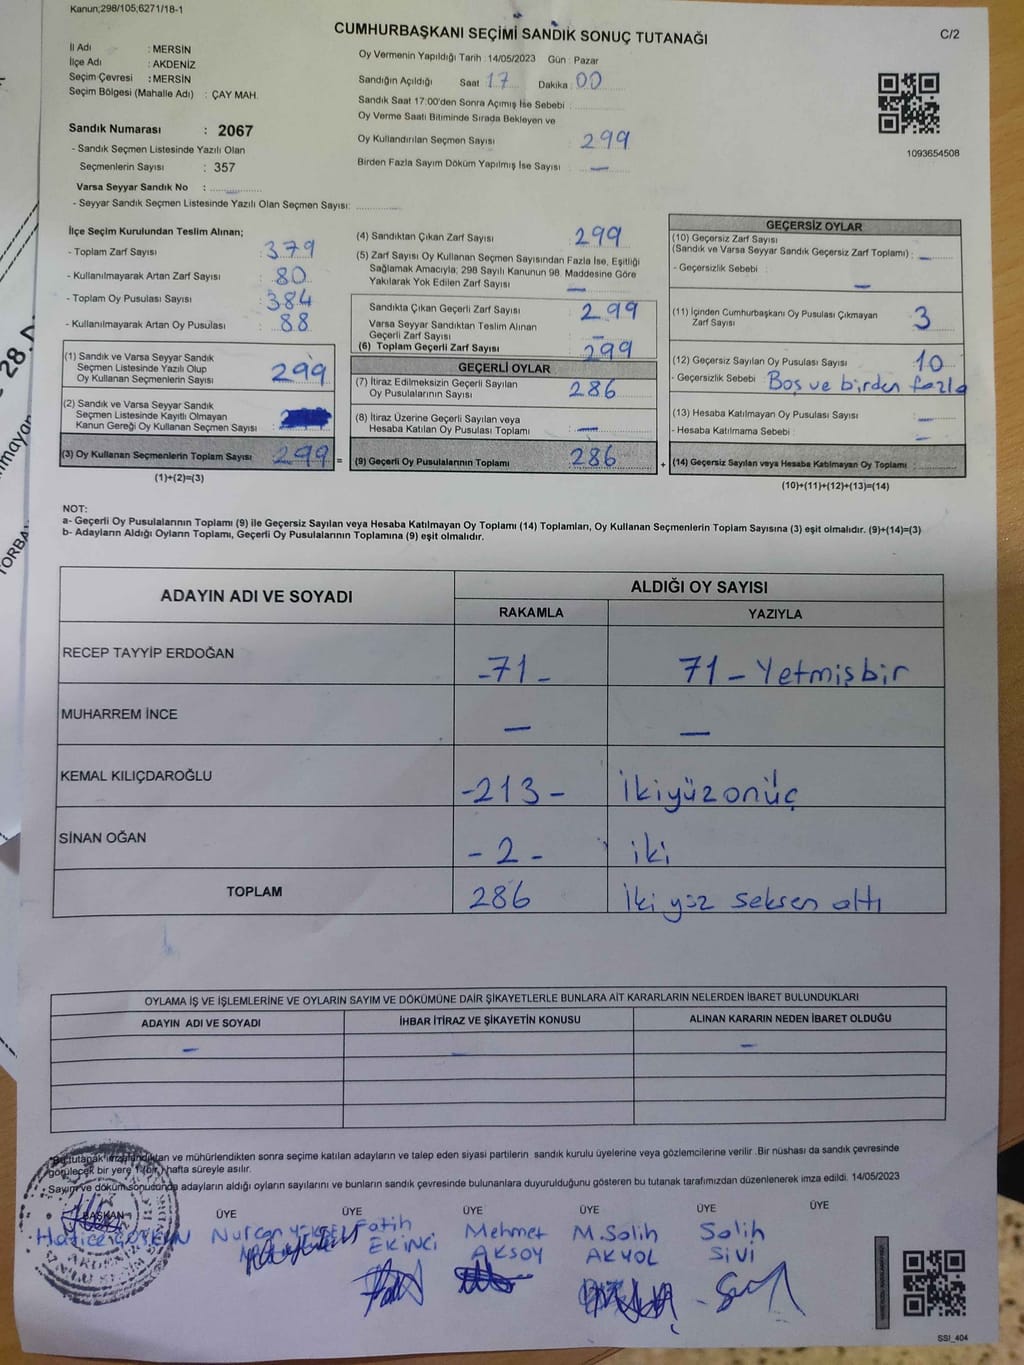 Kanun;298/105;6271/18-1
CUMHURBAŞKANI SEÇİMİ SANDIK SONUÇ TUTANAĞI
C/2
İl Adı : MERSİN
İlçe Adı : AKDENİZ
Seçim Çevresi : MERSİN
Seçim Bölgesi (Mahalle Adı) : ÇAY MAH.
Sandık Numarası : 2067
- Sandık Seçmen Listesinde Yazılı Olan
Seçmenlerin Sayısı : 357
Varsa Seyyar Sandık No :
- Seyyar Sandık Seçmen Listesinde Yazılı Olan Seçmen Sayısı:
Oy Vermenin Yapıldığı Tarih : 14/05/2023 Gün : Pazar
Sandığın Açıldığı Saat 17 Dakika : 00
Sandık Saat 17:00'den Sonra Açımış İse Sebebi :
Oy Verme Saati Bitiminde Sırada Bekleyen ve
Oy Kullandırılan Seçmen Sayısı : 299
Birden Fazla Sayım Döküm Yapılmış İse Sayısı : —
1093654508
İlçe Seçim Kurulundan Teslim Alınan;
- Toplam Zarf Sayısı : 379
- Kullanılmayarak Artan Zarf Sayısı : 80
- Toplam Oy Pusulası Sayısı : 384
- Kullanılmayarak Artan Oy Pusulası : 88
(1) Sandık ve Varsa Seyyar Sandık
Seçmen Listesinde Yazılı Olup
Oy Kullanan Seçmenlerin Sayısı : 299
(2) Sandık ve Varsa Seyyar Sandık
Seçmen Listesinde Kayıtlı Olmayan
Kanun Gereği Oy Kullanan Seçmen Sayısı :
(3) Oy Kullanan Seçmenlerin Toplam Sayısı : 299 =
(1)+(2)=(3)
(4) Sandıktan Çıkan Zarf Sayısı : 299
(5) Zarf Sayısı Oy Kullanan Seçmen Sayısından Fazla İse, Eşitliği
Sağlamak Amacıyla; 298 Sayılı Kanunun 98. Maddesine Göre
Yakılarak Yok Edilen Zarf Sayısı : —
Sandıkta Çıkan Geçerli Zarf Sayısı : 299
Varsa Seyyar Sandıktan Teslim Alınan
Geçerli Zarf Sayısı : —
(6) Toplam Geçerli Zarf Sayısı : 299
GEÇERLİ OYLAR
(7) İtiraz Edilmeksizin Geçerli Sayılan
Oy Pusulalarının Sayısı : 286
(8) İtiraz Üzerine Geçerli Sayılan veya
Hesaba Katılan Oy Pusulası Toplamı : —
(9) Geçerli Oy Pusulalarının Toplamı : 286 +
GEÇERSİZ OYLAR
(10) Geçersiz Zarf Sayısı
(Sandık ve Varsa Seyyar Sandık Geçersiz Zarf Toplamı) : —
- Geçersizlik Sebebi : —
(11) İçinden Cumhurbaşkanı Oy Pusulası Çıkmayan
Zarf Sayısı : 3
(12) Geçersiz Sayılan Oy Pusulası Sayısı : 10
- Geçersizlik Sebebi : Boş ve birden fazla
(13) Hesaba Katılmayan Oy Pusulası Sayısı : —
- Hesaba Katılmama Sebebi : —
(14) Geçersiz Sayılan veya Hesaba Katılmayan Oy Toplamı :
(10)+(11)+(12)+(13)=(14)
NOT:
a- Geçerli Oy Pusulalarının Toplamı (9) ile Geçersiz Sayılan veya Hesaba Katılmayan Oy Toplamı (14) Toplamları, Oy Kullanan Seçmenlerin Toplam Sayısına (3) eşit olmalıdır. (9)+(14)=(3)
b- Adayların Aldığı Oyların Toplamı, Geçerli Oy Pusulalarının Toplamına (9) eşit olmalıdır.
ADAYIN ADI VE SOYADI
ALDIĞI OY SAYISI
RAKAMLA YAZIYLA
RECEP TAYYİP ERDOĞAN -71- 71-Yetmişbir
MUHARREM İNCE — —
KEMAL KILIÇDAROĞLU -213- İkiyüzonüç
SİNAN OĞAN -2- iki
TOPLAM 286 İkiyüz seksen altı
OYLAMA İŞ VE İŞLEMLERİNE VE OYLARIN SAYIM VE DÖKÜMÜNE DAİR ŞİKAYETLERLE BUNLARA AİT KARARLARIN NELERDEN İBARET BULUNDUKLARI
ADAYIN ADI VE SOYADI İHBAR İTİRAZ VE ŞİKAYETİN KONUSU ALINAN KARARIN NEDEN İBARET OLDUĞU
— — —
tutanak imzalandıktan ve mühürlendikten sonra seçime katılan adayların ve talep eden siyasi partilerin sandık kurulu üyelerine veya gözlemcilerine verilir. Bir nüshası da sandık çevresinde
görülecek bir yere 1 (bir) hafta süreyle asılır.
Sayım ve döküm sonucunda adayların aldığı oyların sayılarını ve bunların sandık çevresinde bulunanlara duyurulduğunu gösteren bu tutanak tarafımızdan düzenlenerek imza edildi. 14/05/2023
BAŞKAN ÜYE ÜYE ÜYE ÜYE ÜYE ÜYE
Hatice COŞKUN
Nurcan
Fatih EKİNCİ
Mehmet AKSOY
M.Salih AKYOL
Salih SİVİ
SSI_404